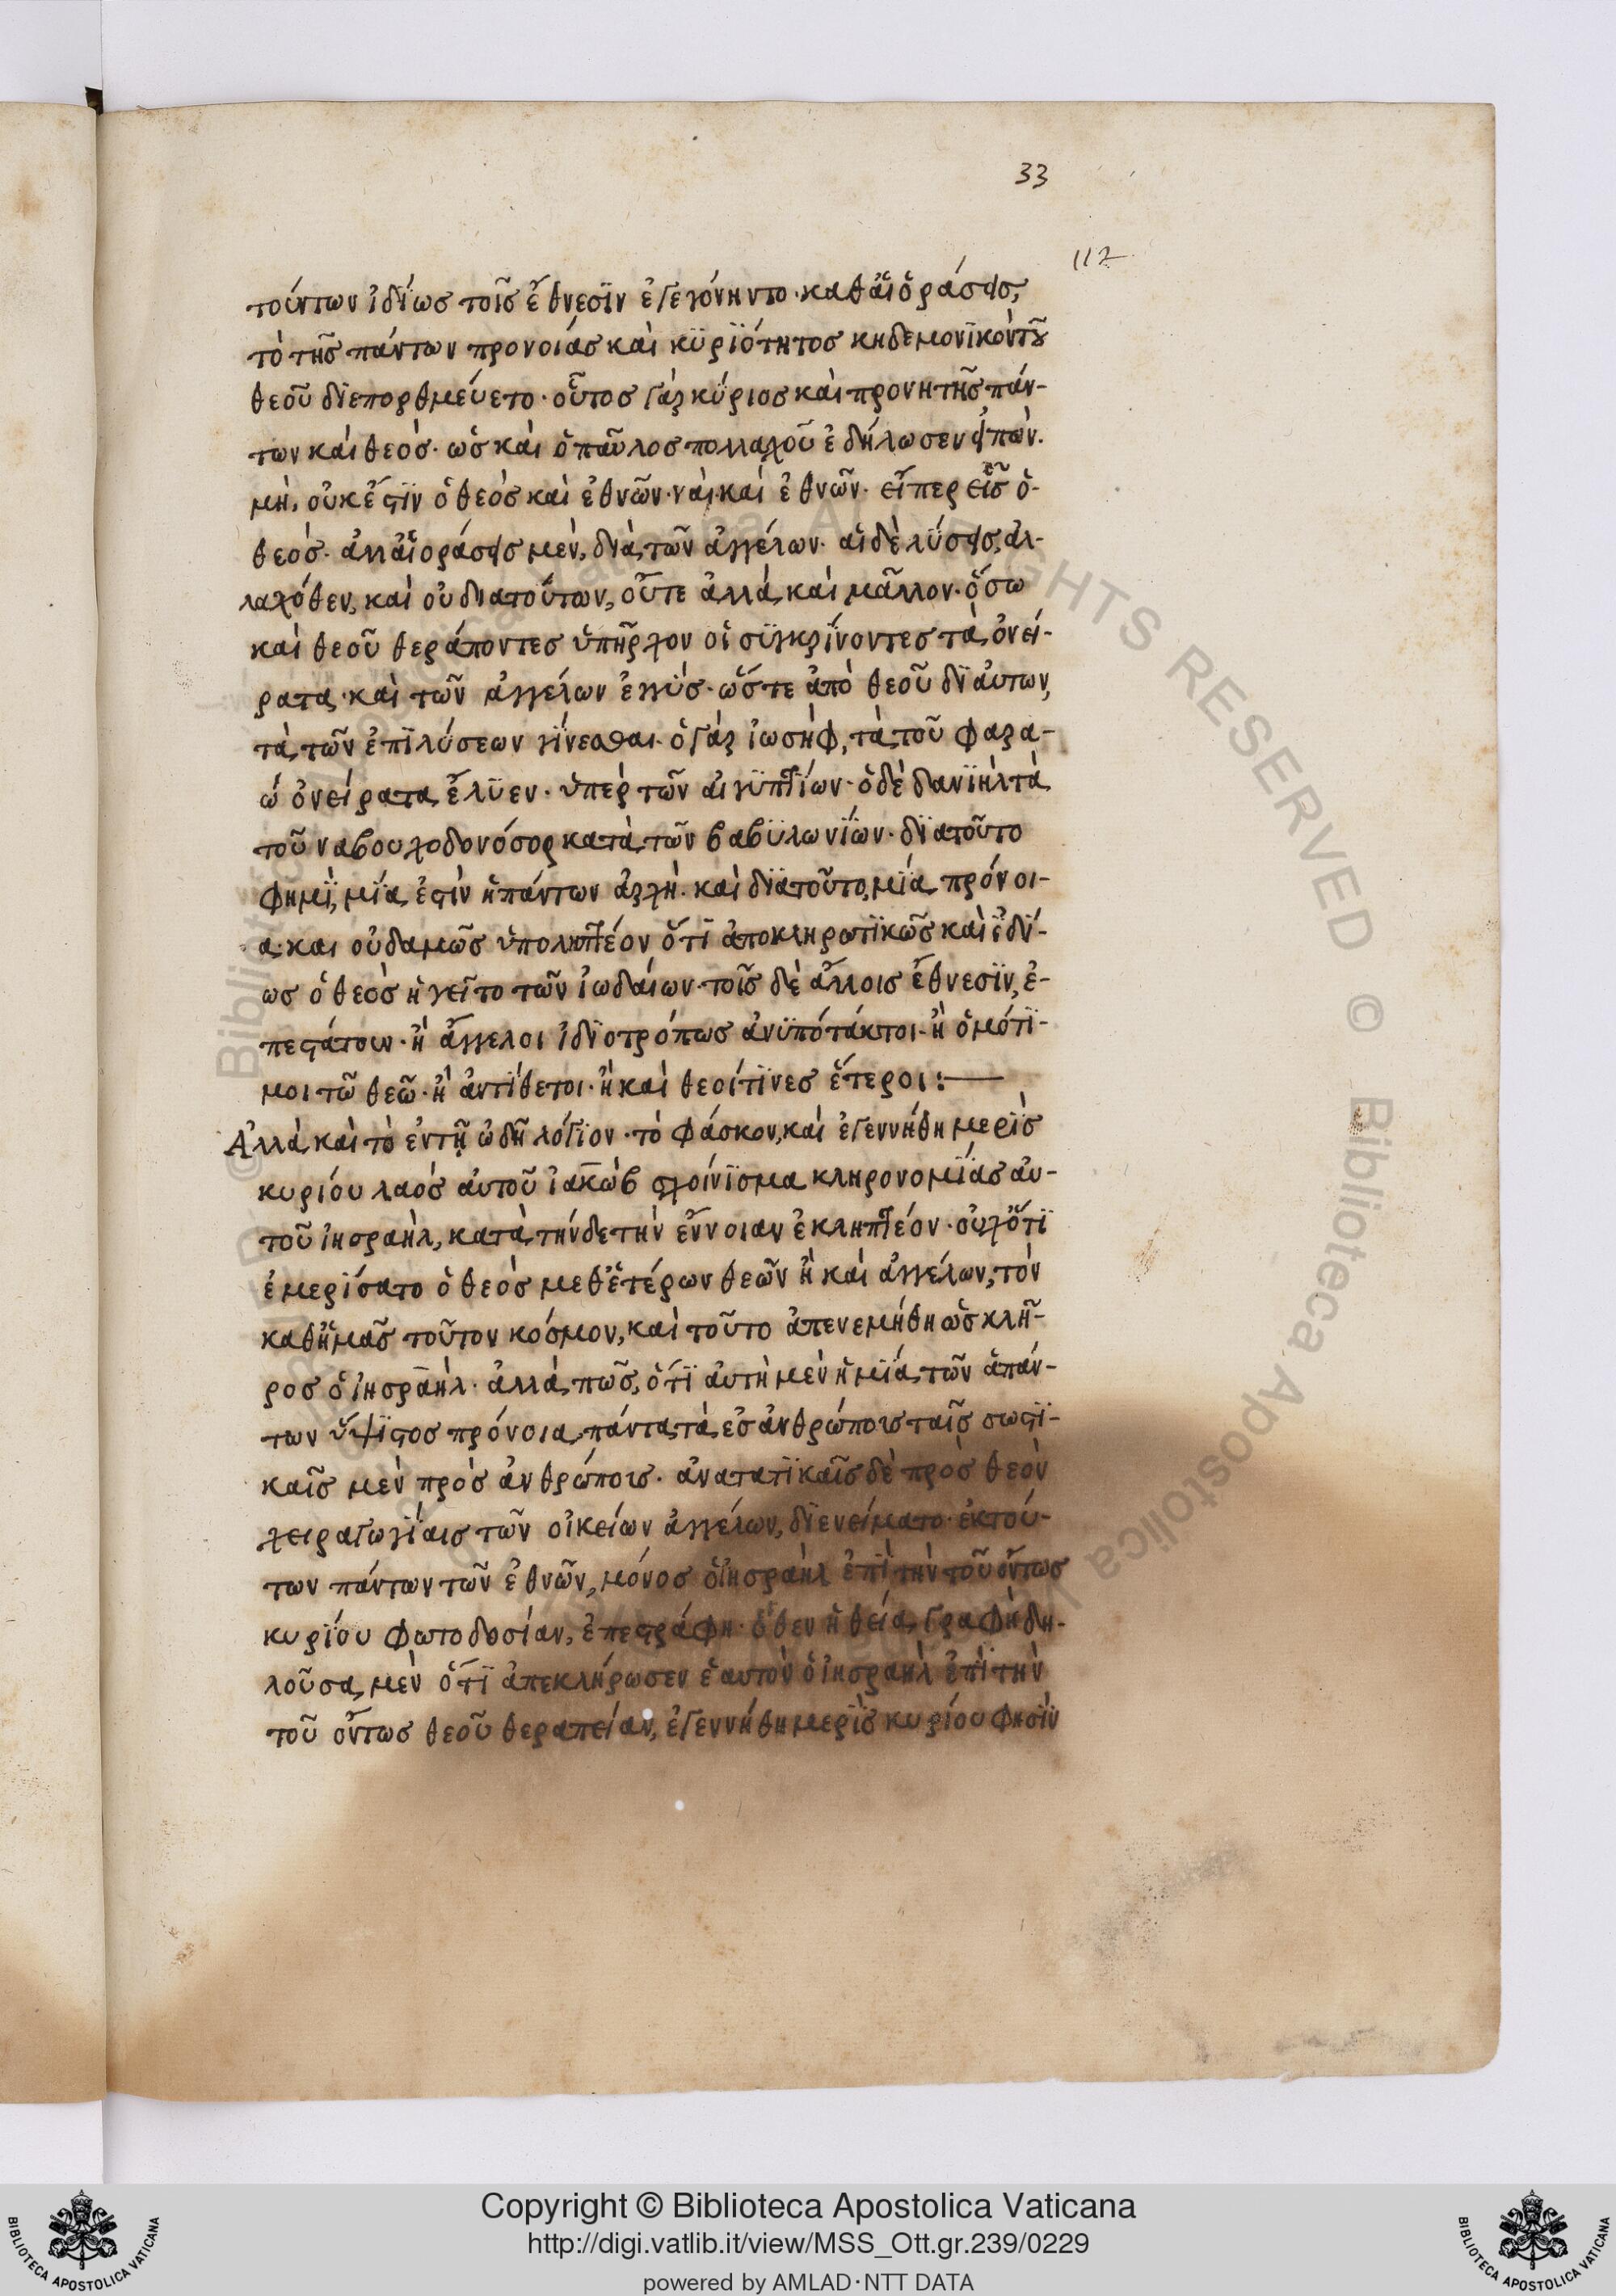 33
112
τούτων ἰδίως τοῖς ἔθνεσϊν ἐγεγόνηντο· καθ' ἃϊ ὁράσεις,
τὸ τῆς πάντων προνοίας καὶ κϋρϊότητος κηδεμονϊκὸν τοῦ
θεοῦ δϊεπορθμεύετο· οὗτος γὰρ κύριος καὶ προνητὴς πάν-
των καὶ θεός· ὡς καὶ ὁ παῦλος πολλαχοῦ ἐδήλωσεν εἰπών·
μὴ, οὐκ ἔστϊν ὁ θεὸς καὶ ἐθνῶν· ναὶ· καὶ ἐθνῶν· εἴπερ εἷς ὁ-
θεός· ἀλλ' αἱ ὁράσεις μὲν, διὰ τῶν ἀγγέλων· αἱ δὲ λύσεις, ἀλ-
λαχόθεν, καὶ οὐ διατούτων, οὔτε ἀλλὰ καὶ μᾶλλον· ὅσω
καὶ θεοῦ θεράποντες ὑπῆρχον οἱ συγκρίνοντες τὰ ὀνεί-
ρατα· καὶ τῶν ἀγγέλων ἐγγύς· ὥστε ἀπὸ θεοῦ δϊ αὐτων,
τὰ τῶν ἐπϊλύσεων γίνεσθαι· ὁ γὰρ ἰωσὴφ, τὰ τοῦ φαρα-
ὼ ὀνείρατα ἔλϋεν· ὑπὲρ τῶν αἰγϋπτίων· ὁ δὲ δανϊὴλ τὰ
τοῦ ναβουχοδονόσορ κατὰ τῶν βαβϋλωνίων· δϊατοῦτο
φημϊ, μία ἐστὶν ἡ πάντων ἀρχὴ· καὶ δϊατοῦτο, μία πρόνοι-
α· και οὐδαμῶς ὑποληπτέον ὅτϊ ἀποκληρωτϊκῶς καὶ ἰδί-
ως ὁ θεὸς ἡγεῖτο τῶν ἰωδαίων· τοῖς δὲ ἄλλοις ἔθνεσϊν, ἐ-
πεστάτουν· ἢ ἄγγελοι ἰδϊοτρόπως ἀνϋπότακτοι· ἢ ὁμότϊ-
μοι τῶ θεῶ· ἢ ἀντίθετοι· ἢ καὶ θεοίτϊνες ἕτεροι:—
Ἀλλὰ καὶ τὸ ἐν τῇ ὠδῇ λόγϊον· τὸ φάσκον, καὶ ἐγεννήθη μερϊς
κυρίου λαὸς αὐτοῦ ἰακὼβ σχοίνϊσμα κληρονομίας αὐ-
τοῦ ἰησραὴλ, κατὰ τήνδε τὴν ἔννοιαν ἐκληπτέον· οὐχ ὅτϊ
ἐμερίσατο ὁ θεὸς μεθ' ἑτέρων θεῶν ἢ καὶ ἀγγέλων, τὸν
καθ' ἡμᾶς τοῦτον κόσμον, καὶ τοῦτο ἀπενεμήθη ὡς κλῆ-
ρος ὁ ἰησραὴλ· ἀλλὰ πῶς, ὅτϊ αὐτὴ μὲν ἡ μία τῶν ἁπάν-
των ὕψϊστος πρόνοια πάντα τὰ ἐς ἀνθρώποις ταῖς σωστϊ-
καῖς μὲν πρὸς ἀνθρώποις· ἀνατατϊκαῖς δὲ πρὸς θεὸν
χειραγωγίαις τῶν οἰκείων ἀγγέλων, δϊενείματο· ἐκ τού-
των πάντων τῶν ἐθνῶν, μόνος ὁ ἰησραὴλ ἐπϊ τὴν τοῦ ὄντως
κυρίου φωτοδοσίαν, ἐπεστράφη· ὅθεν ἡ θεία γραφὴ δη-
λοῦσα μὲν ὅτϊ ἀπεκλήρωσεν ἑαυτὸν ὁ ἰησραὴλ ἐπϊ τὴν
τοῦ ὄντως θεοῦ θεραπείαν, ἐγεννήθη μερϊς κυρίου φησϊν
Copyright © Biblioteca Apostolica Vaticana
http://digi.vatlib.it/view/MSS_Ott.gr.239/0229
powered by AMLAD·NTT DATA
BIBLIOTECA APOSTOLICA VATICANA
BIBLIOTECA APOSTOLICA VATICANA